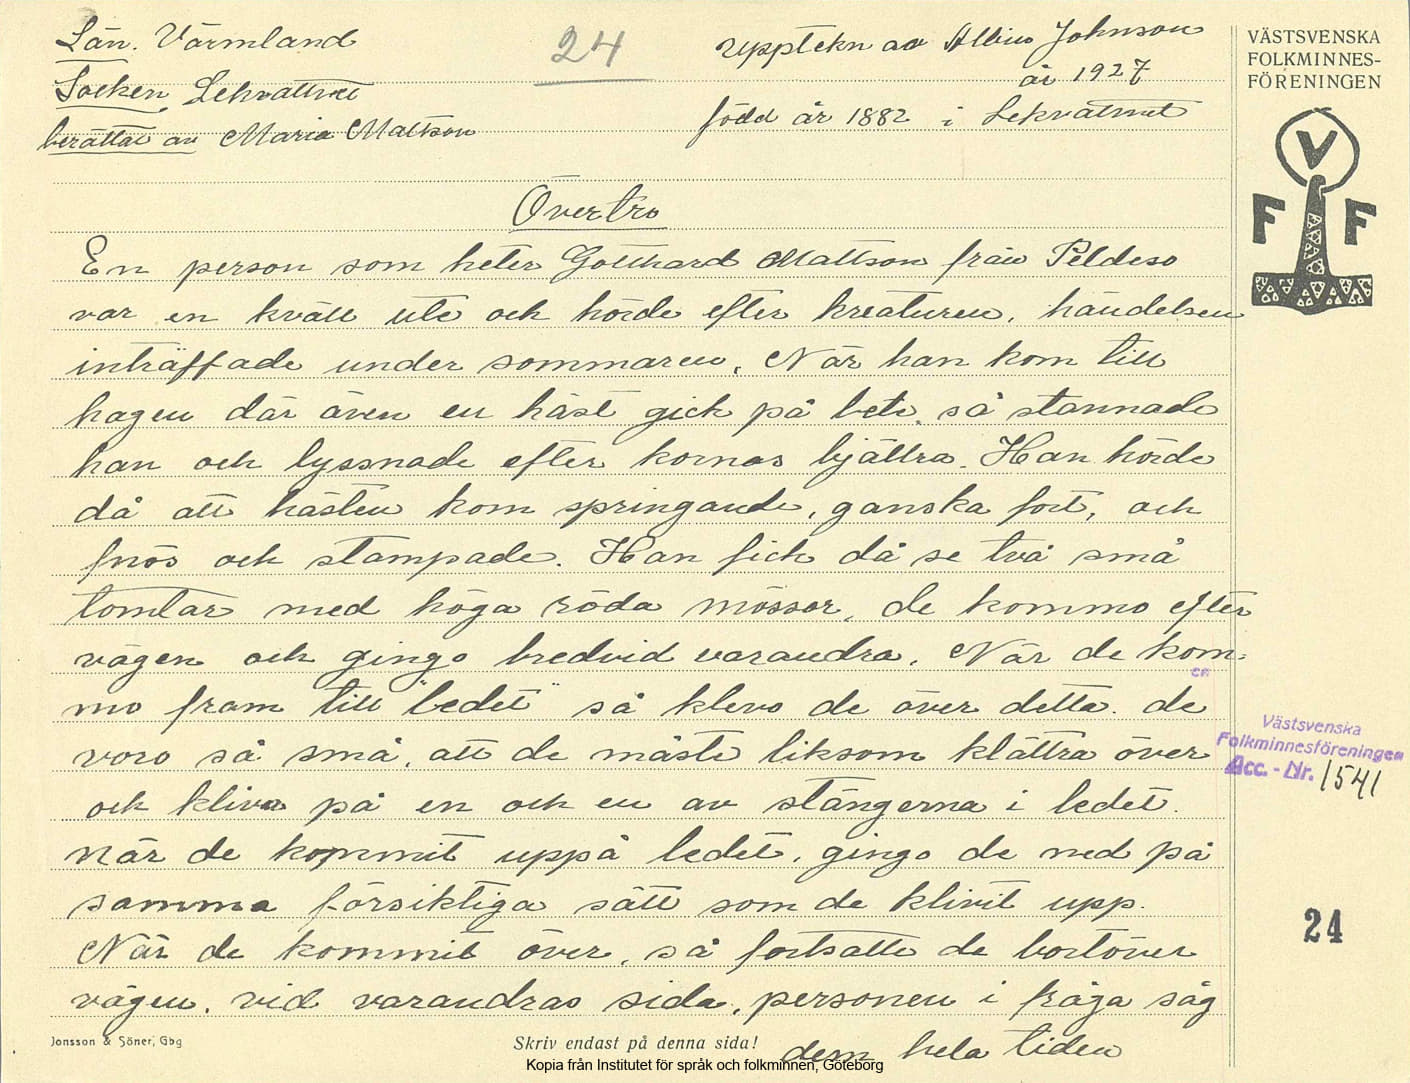 Län. Värmland
24
Upptekn av Albin Johnson
år 1927
Socken Lekvattnet
född år 1882 i Lekvattnet
berättat av Maria Mattson
VÄSTSVENSKA
FOLKMINNES-
FÖRENINGEN
V
F F
Övertro
En person som heter Gotthard Mattson från Peldeso
var en kväll ute och hörde efter kreaturen, händelsen
inträffade under sommaren. När han kom till
hagen där även en häst gick på bete, så stannade
han och lyssnade efter kornas bjällra. Han hörde
då att hästen kom springande, ganska fort, och
fnös och stampade. Han fick då se två små
tomtar med höga röda mössor, de kommo efter
vägen och gingo bredvid varandra. När de kom-
mo fram till "ledet" så klevo de över detta. de
voro så små, att de måste liksom klättra över
och kliva på en och en av stängerna i ledet.
när de kommit uppå ledet, gingo de ned på
samma försiktiga sätt som de klivit upp.
När de kommit över, så fortsatte de bortöver
vägen, vid varandras sida, personen i fråga såg
dem hela tiden
Västsvenska
Folkminnesföreningen
Acc. - Nr. 1541
24
Jonsson & Söner, Gbg
Skriv endast på denna sida!
Kopia från Institutet för språk och folkminnen, Göteborg